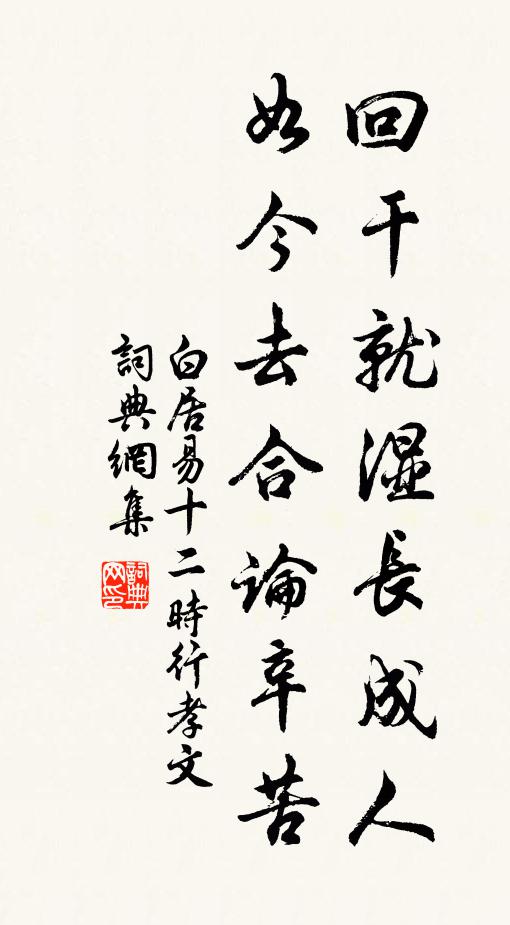 回干就湿長成人
如今去合論辛苦
白居易十二時行孝文
詞典網集
詞典网印